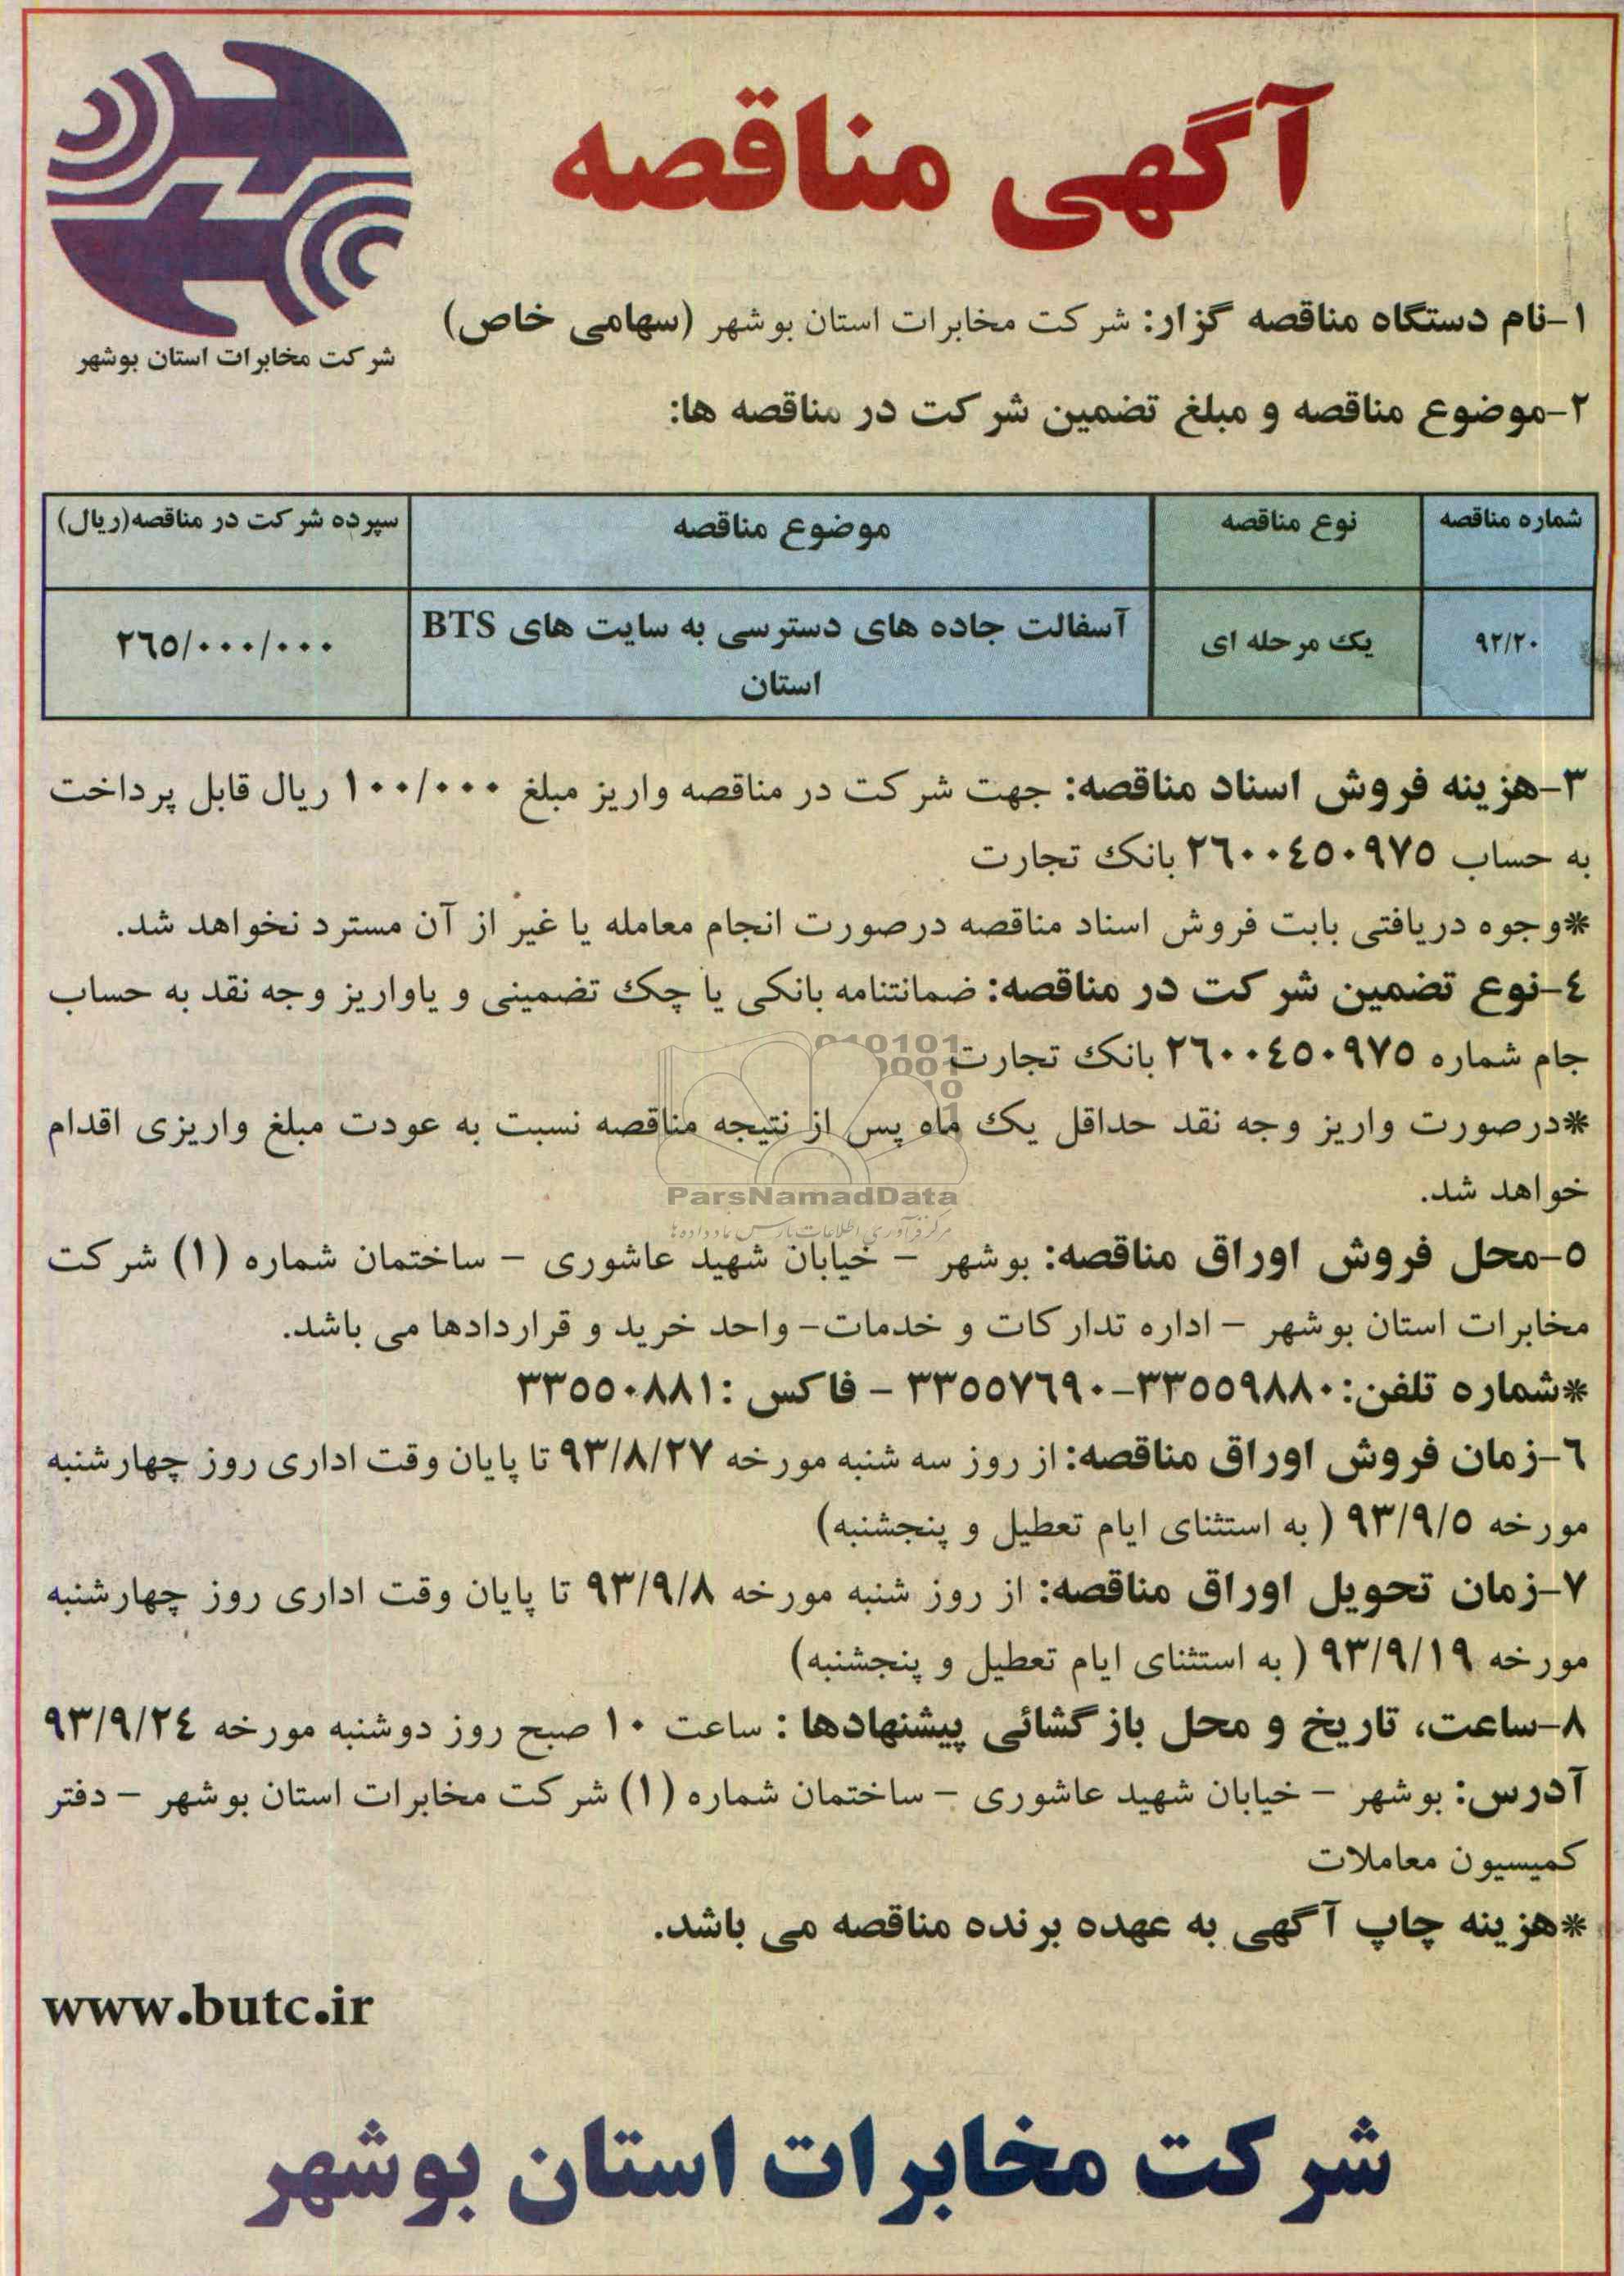 آگهی مناقصه
شرکت مخابرات استان بوشهر
۱-نام دستگاه مناقصه گزار: شرکت مخابرات استان بوشهر (سهامی خاص)
۲-موضوع مناقصه و مبلغ تضمین شرکت در مناقصه ها:
شماره مناقصه	نوع مناقصه	موضوع مناقصه	سپرده شرکت در مناقصه(ریال)
۹۲/۲۰	یک مرحله ای	آسفالت جاده های دسترسی به سایت های BTS	۲٦٥/۰۰۰/۰۰۰
استان
۳-هزینه فروش اسناد مناقصه: جهت شرکت در مناقصه واریز مبلغ ۱۰۰/۰۰۰ ریال قابل پرداخت
به حساب ۲٦۰۰٤٥۰۹۷٥ بانک تجارت
*وجوه دریافتی بابت فروش اسناد مناقصه درصورت انجام معامله یا غیر از آن مسترد نخواهد شد.
٤-نوع تضمین شرکت در مناقصه: ضمانتنامه بانکی یا چک تضمینی و یاواریز وجه نقد به حساب
جام شماره ۲٦۰۰٤٥۰۹۷٥ بانک تجارت
*درصورت واریز وجه نقد حداقل یک ماه پس از نتیجه مناقصه نسبت به عودت مبلغ واریزی اقدام
خواهد شد.
ParsNamadData
٥-محل فروش اوراق مناقصه: بوشهر – خیابان شهید عاشوری – ساختمان شماره (۱) شرکت
مخابرات استان بوشهر – اداره تدارکات و خدمات- واحد خرید و قراردادها می باشد.
*شماره تلفن: ۳۳٥٥۹۸۸۰-۳۳٥٥۷٦۹۰ – فاکس :۳۳٥٥۰۸۸۱
٦-زمان فروش اوراق مناقصه: از روز سه شنبه مورخه ۹۳/۸/۲۷ تا پایان وقت اداری روز چهارشنبه
مورخه ۹۳/۹/٥ ( به استثنای ایام تعطیل و پنجشنبه)
۷-زمان تحویل اوراق مناقصه: از روز شنبه مورخه ۹۳/۹/۸ تا پایان وقت اداری روز چهارشنبه
مورخه ۹۳/۹/۱۹ ( به استثنای ایام تعطیل و پنجشنبه)
۸-ساعت، تاریخ و محل بازگشائی پیشنهادها : ساعت ۱۰ صبح روز دوشنبه مورخه ۹۳/۹/۲٤
آدرس: بوشهر – خیابان شهید عاشوری – ساختمان شماره (۱) شرکت مخابرات استان بوشهر – دفتر
کمیسیون معاملات
*هزینه چاپ آگهی به عهده برنده مناقصه می باشد.
www.butc.ir
شرکت مخابرات استان بوشهر